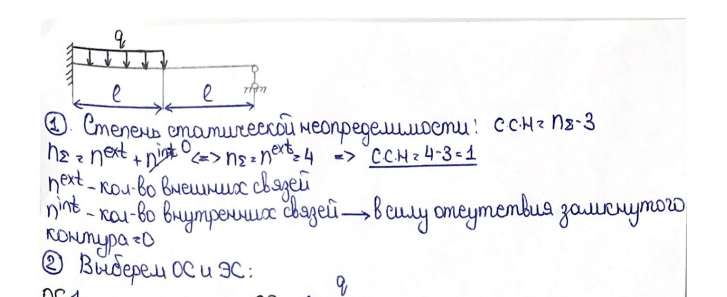 q
ℓ ℓ
① Степень статической неопределимости: С.С.Н = nΣ-3
nΣ = n^ext + n^int 0 <=> nΣ = n^ext = 4 => С.С.Н = 4-3 = 1
n^ext - кол-во внешних связей
n^int - кол-во внутренних связей → в силу отсутствия замкнутого
контура = 0
② Выберем ОС и ЭС:
q